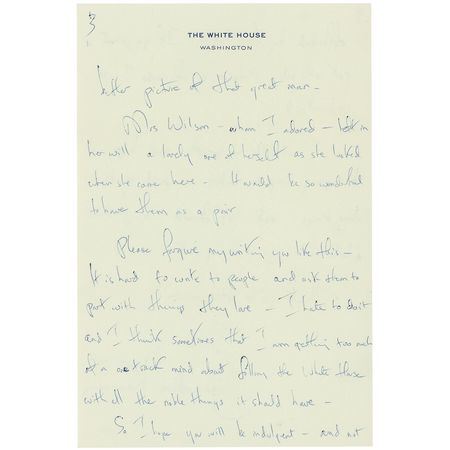 3
THE WHITE HOUSE
WASHINGTON
better picture of that great man -
Mrs Wilson - whom I adored - left in
her will a lovely one of herself as she looked
when she came here - It would be so wonderful
to have them as a pair
Please forgive my writing you like this -
It is hard to write to people and ask them to
part with things they love - I hate to do it
and I think sometimes that I am getting too much
of a one track mind about filling the White House
with all the noble things it should have -
So I hope you will be indulgent - and not